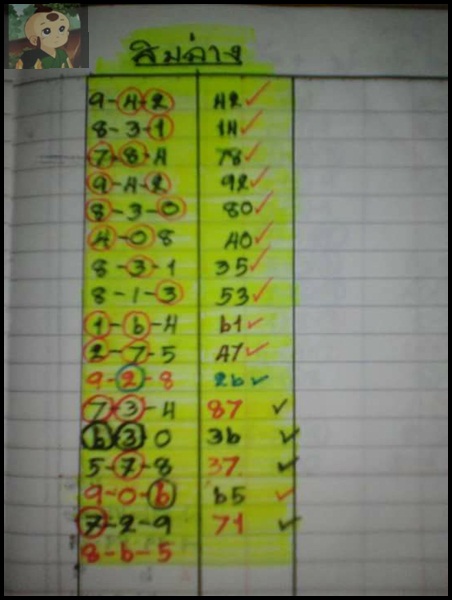 สิบล่าง
9-4-2 42 ✓
8-3-1 14 ✓
7-8-4 78 ✓
9-4-2 92 ✓
8-3-0 80 ✓
4-0-8 40 ✓
8-3-1 35 ✓
8-1-3 53 ✓
1-6-4 61 ✓
2-7-5 47 ✓
9-2-8 26 ✓
7-3-4 87 ✓
6-3-0 36 ✓
5-7-8 37 ✓
9-0-6 65 ✓
7-2-9 71 ✓
8-6-5